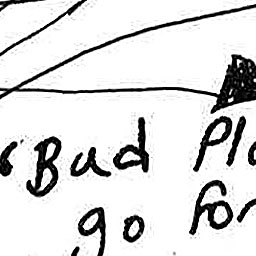 "Bad Pla
go for